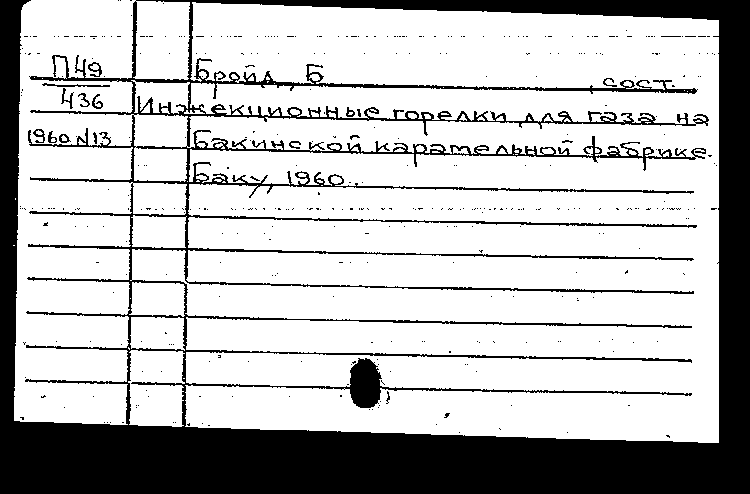 П49 Бройд, Б , сост.
436 Инжекционные горелки для газа на
1960 N13 Бакинской карамельной фабрике.
Баку, 1960.